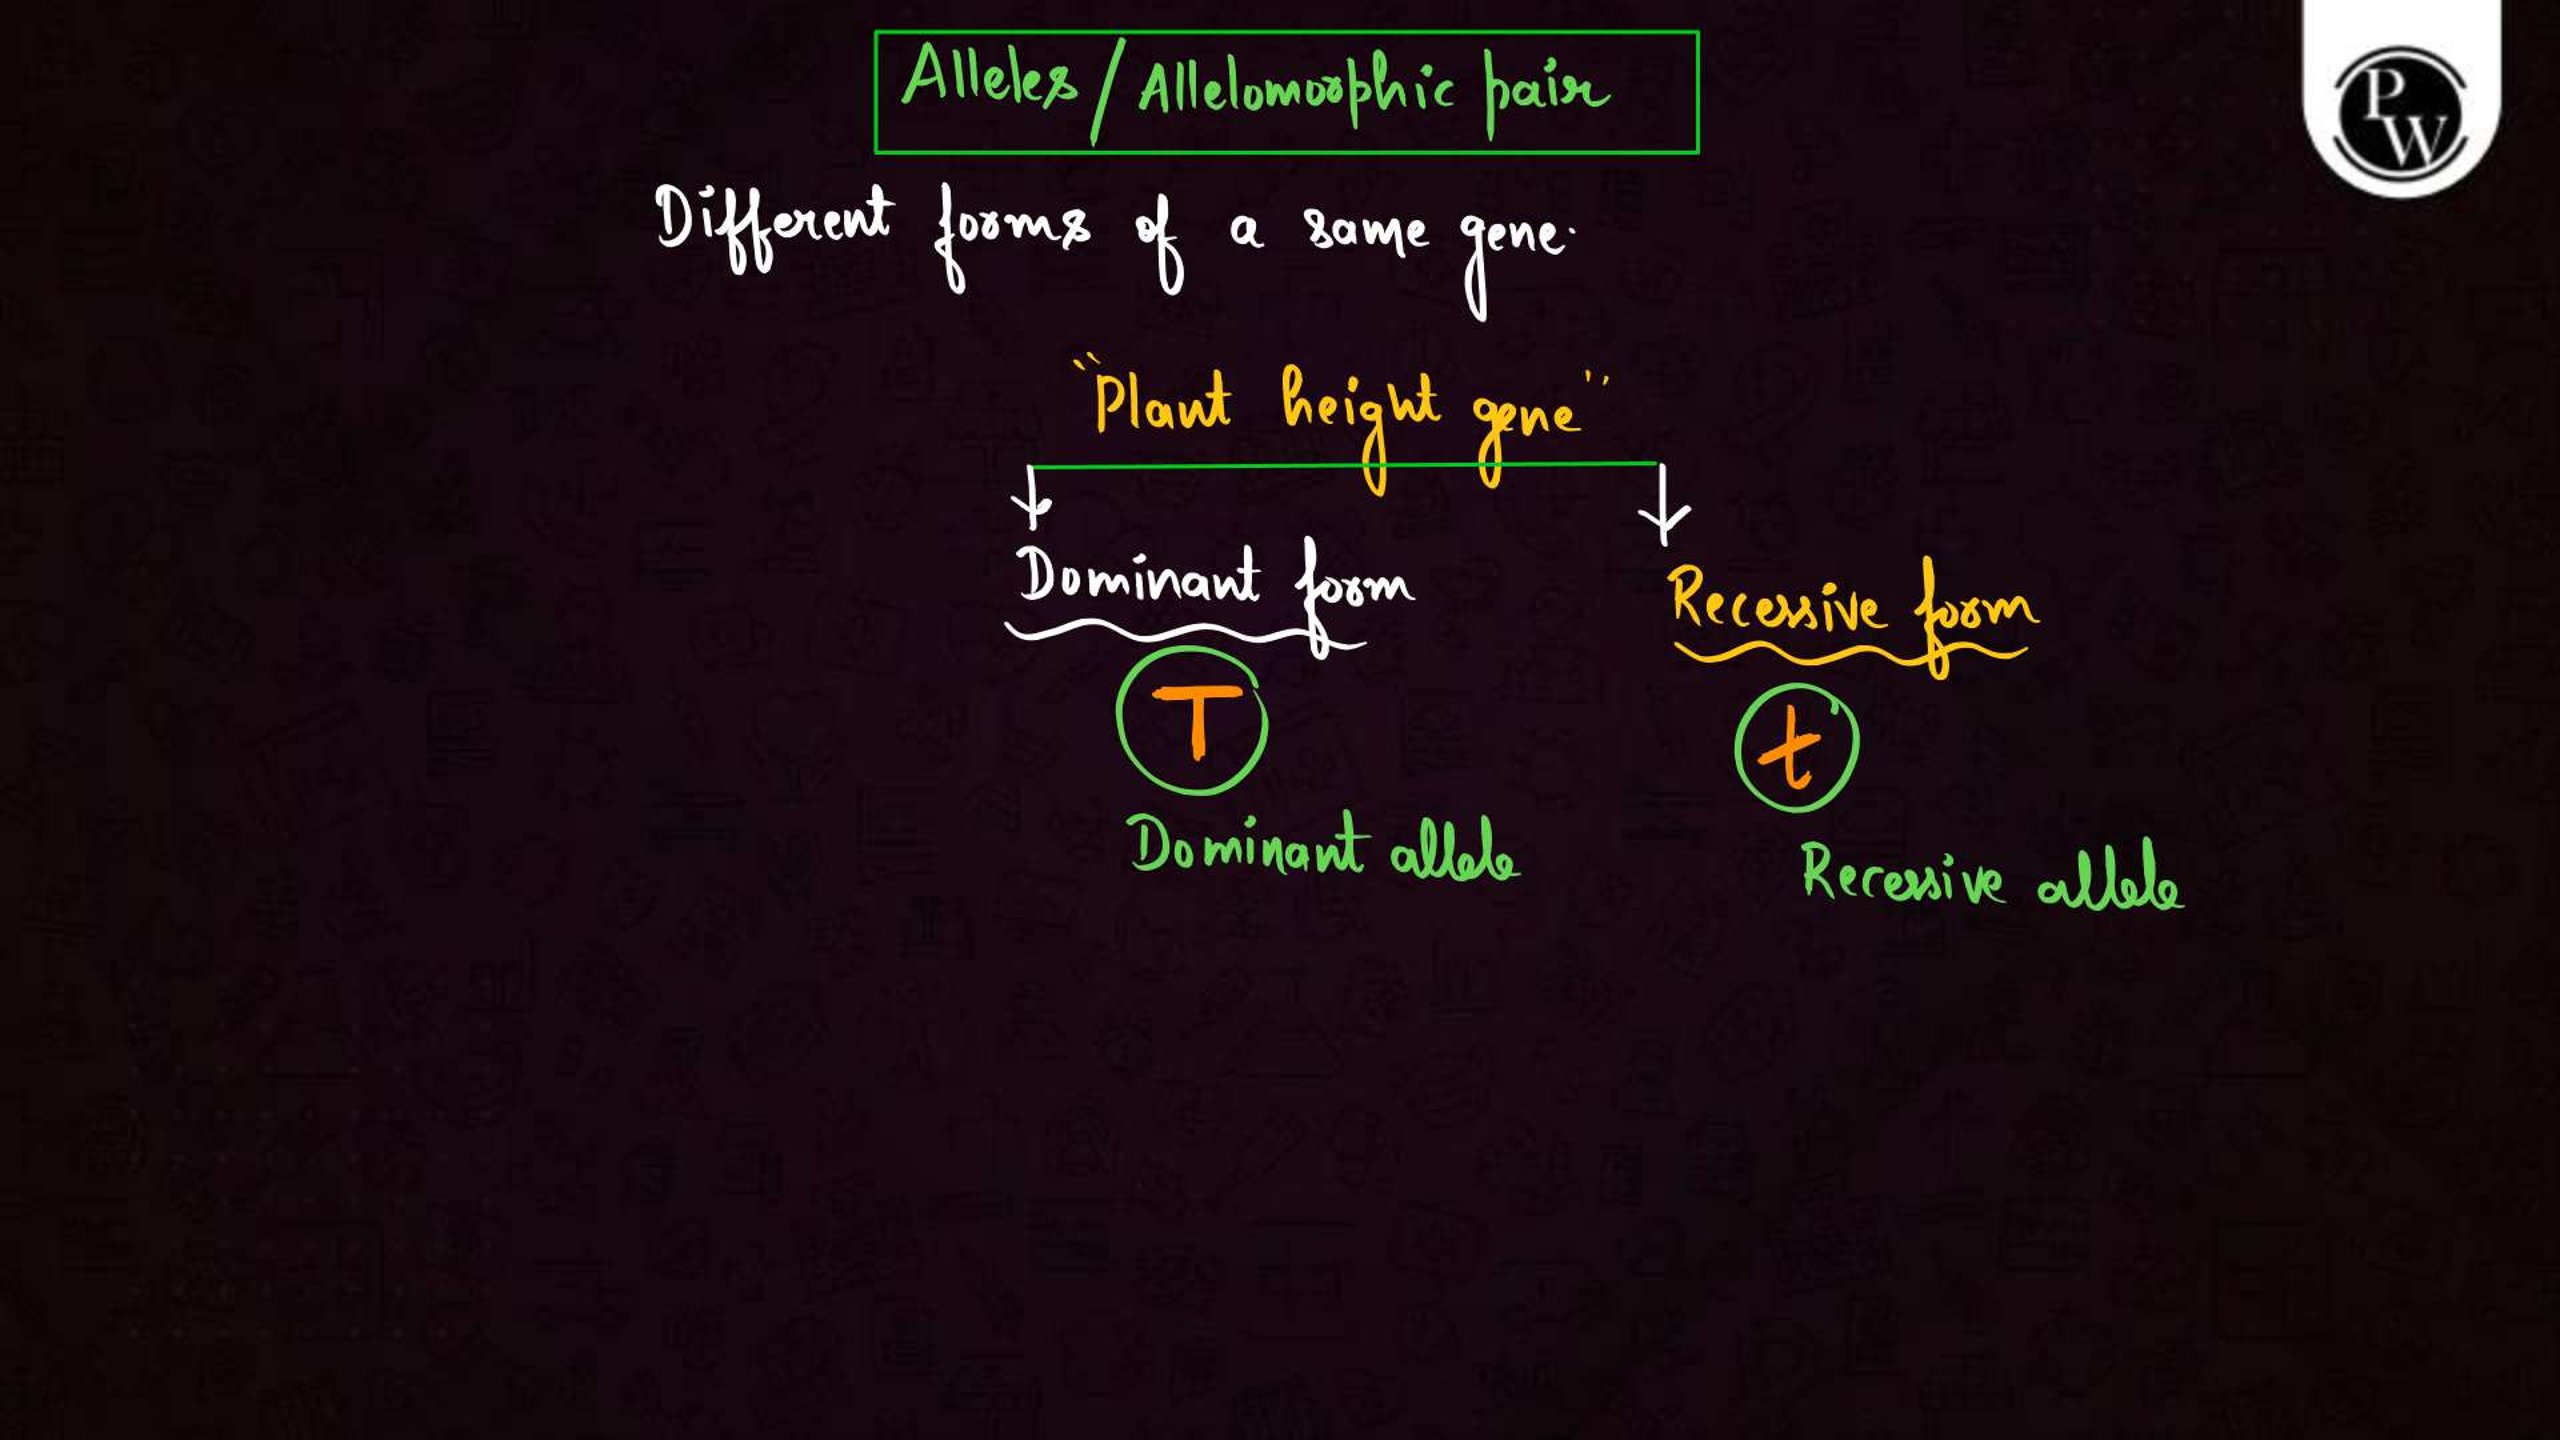 Alleles / Allelomorphic pair
PW
Different forms of a same gene.
"Plant height gene"
Dominant form
Recessive form
T
t
Dominant allele
Recessive allele